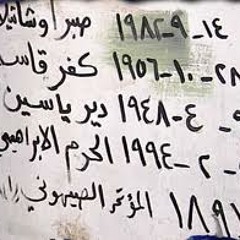 ١٤-٩-١٩٨٢ صبرا وشاتيلا
٢٨-١٠-١٩٥٦ كفر قاسم
٤-١٩٤٨ دير ياسين
٢-١٩٩٤ الحرم الابراهيمي
١٨٩٧ المؤتمر الصهيوني